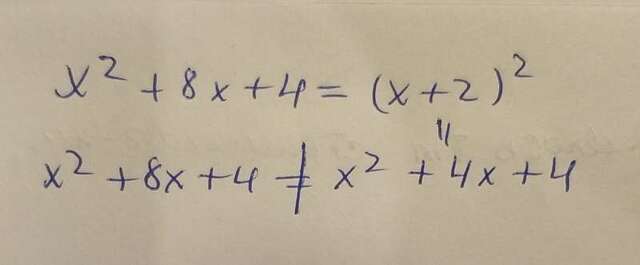 x² + 8x + 4 = (x + 2)²
॥
x² + 8x + 4 ≠ x² + 4x + 4